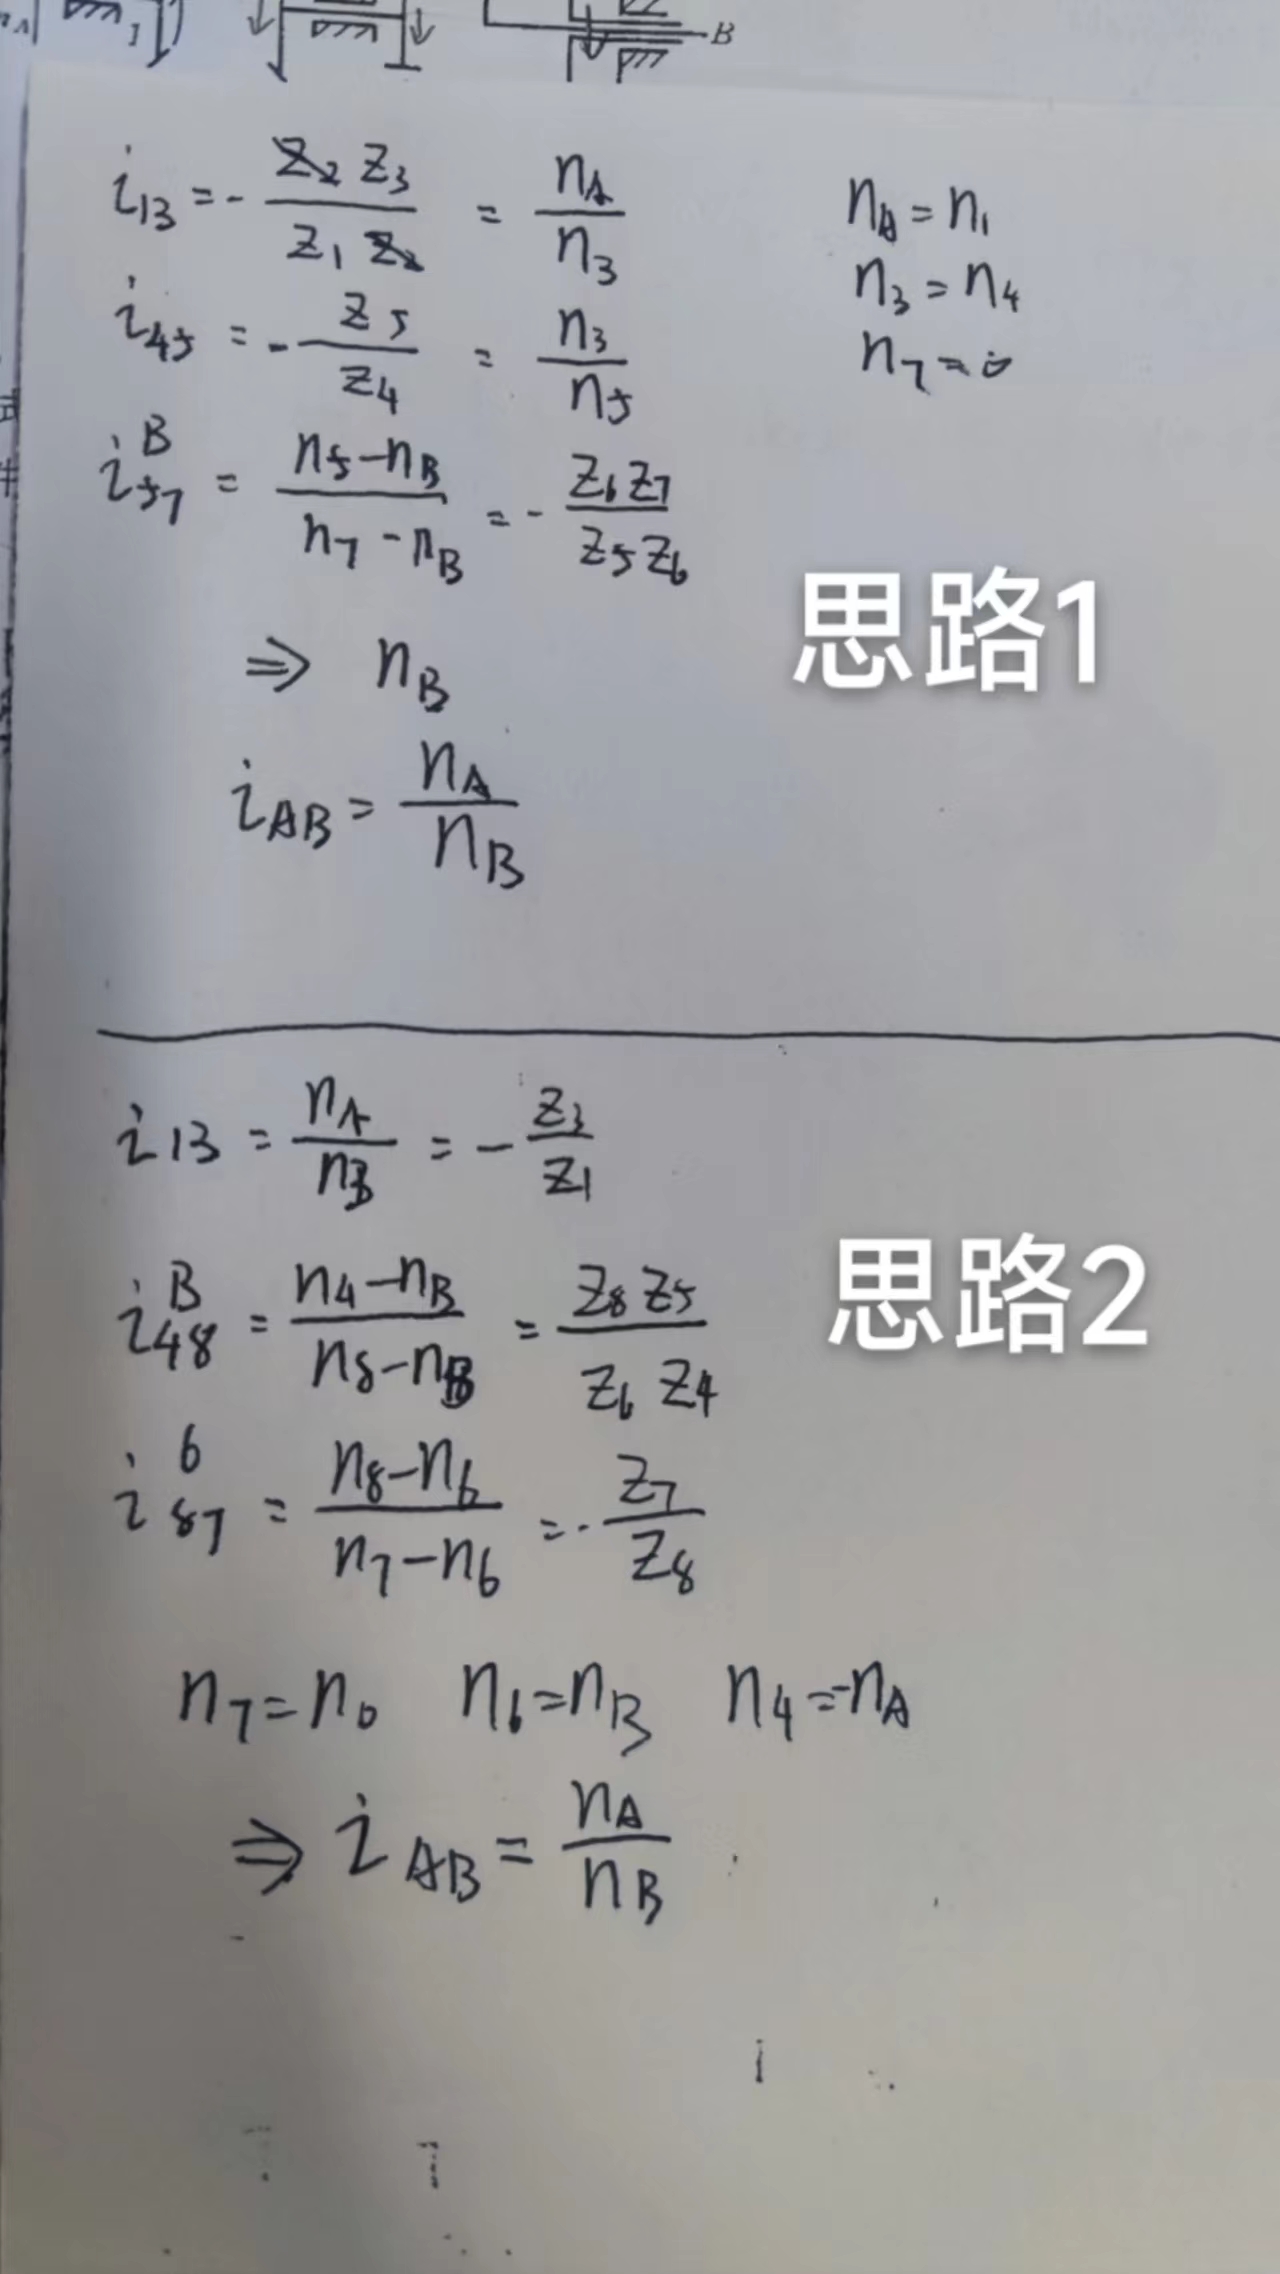 B
i₁₃ = - Z₂ Z₃ / Z₁ Z₂ = n_A / n₃
n_A = n₁
n₃ = n₄
i₄₅ = - Z₅ / Z₄ = n₃ / n₅
n₇ = 0
i₅₇^B = (n₅ - n_B) / (n₇ - n_B) = - Z₆ Z₇ / Z₅ Z₆
思路1
⇒ n_B
i_AB = n_A / n_B
i₁₃ = n_A / n₃ = - Z₃ / Z₁
思路2
i₄₈^B = (n₄ - n_B) / (n₈ - n_B) = Z₈ Z₅ / Z₆ Z₄
i₈₇^6 = (n₈ - n₆) / (n₇ - n₆) = - Z₇ / Z₈
n₇ = n₀ n₆ = n_B n₄ = -n_A
⇒ i_AB = n_A / n_B